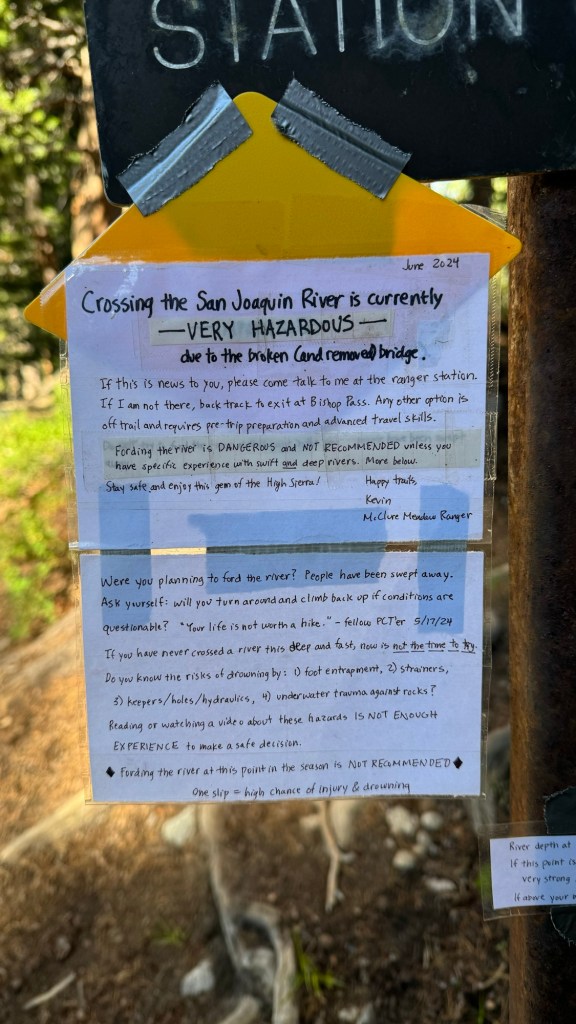 STATION
June 2024
Crossing the San Joaquin River is currently
— VERY HAZARDOUS —
due to the broken (and removed) bridge.
If this is news to you, please come talk to me at the ranger station.
If I am not there, back track to exit at Bishop Pass. Any other option is
off trail and requires pre-trip preparation and advanced travel skills.
Fording the river is DANGEROUS and NOT RECOMMENDED unless you
have specific experience with swift and deep rivers. More below.
Stay safe and enjoy this gem of the High Sierra!
Happy trails,
Kevin
McClure Meadow Ranger
Were you planning to ford the river? People have been swept away.
Ask yourself: will you turn around and climb back up if conditions are
questionable? "Your life is not worth a hike." - fellow PCT'er 5/17/24
If you have never crossed a river this deep and fast, now is not the time to try.
Do you know the risks of drowning by: 1) foot entrapment, 2) strainers,
3) keepers/holes/hydraulics, 4) underwater trauma against rocks?
Reading or watching a video about these hazards IS NOT ENOUGH
EXPERIENCE to make a safe decision.
♦ Fording the river at this point in the season is NOT RECOMMENDED ♦
One slip = high chance of injury & drowning
River depth at
If this point is
very strong
If above your